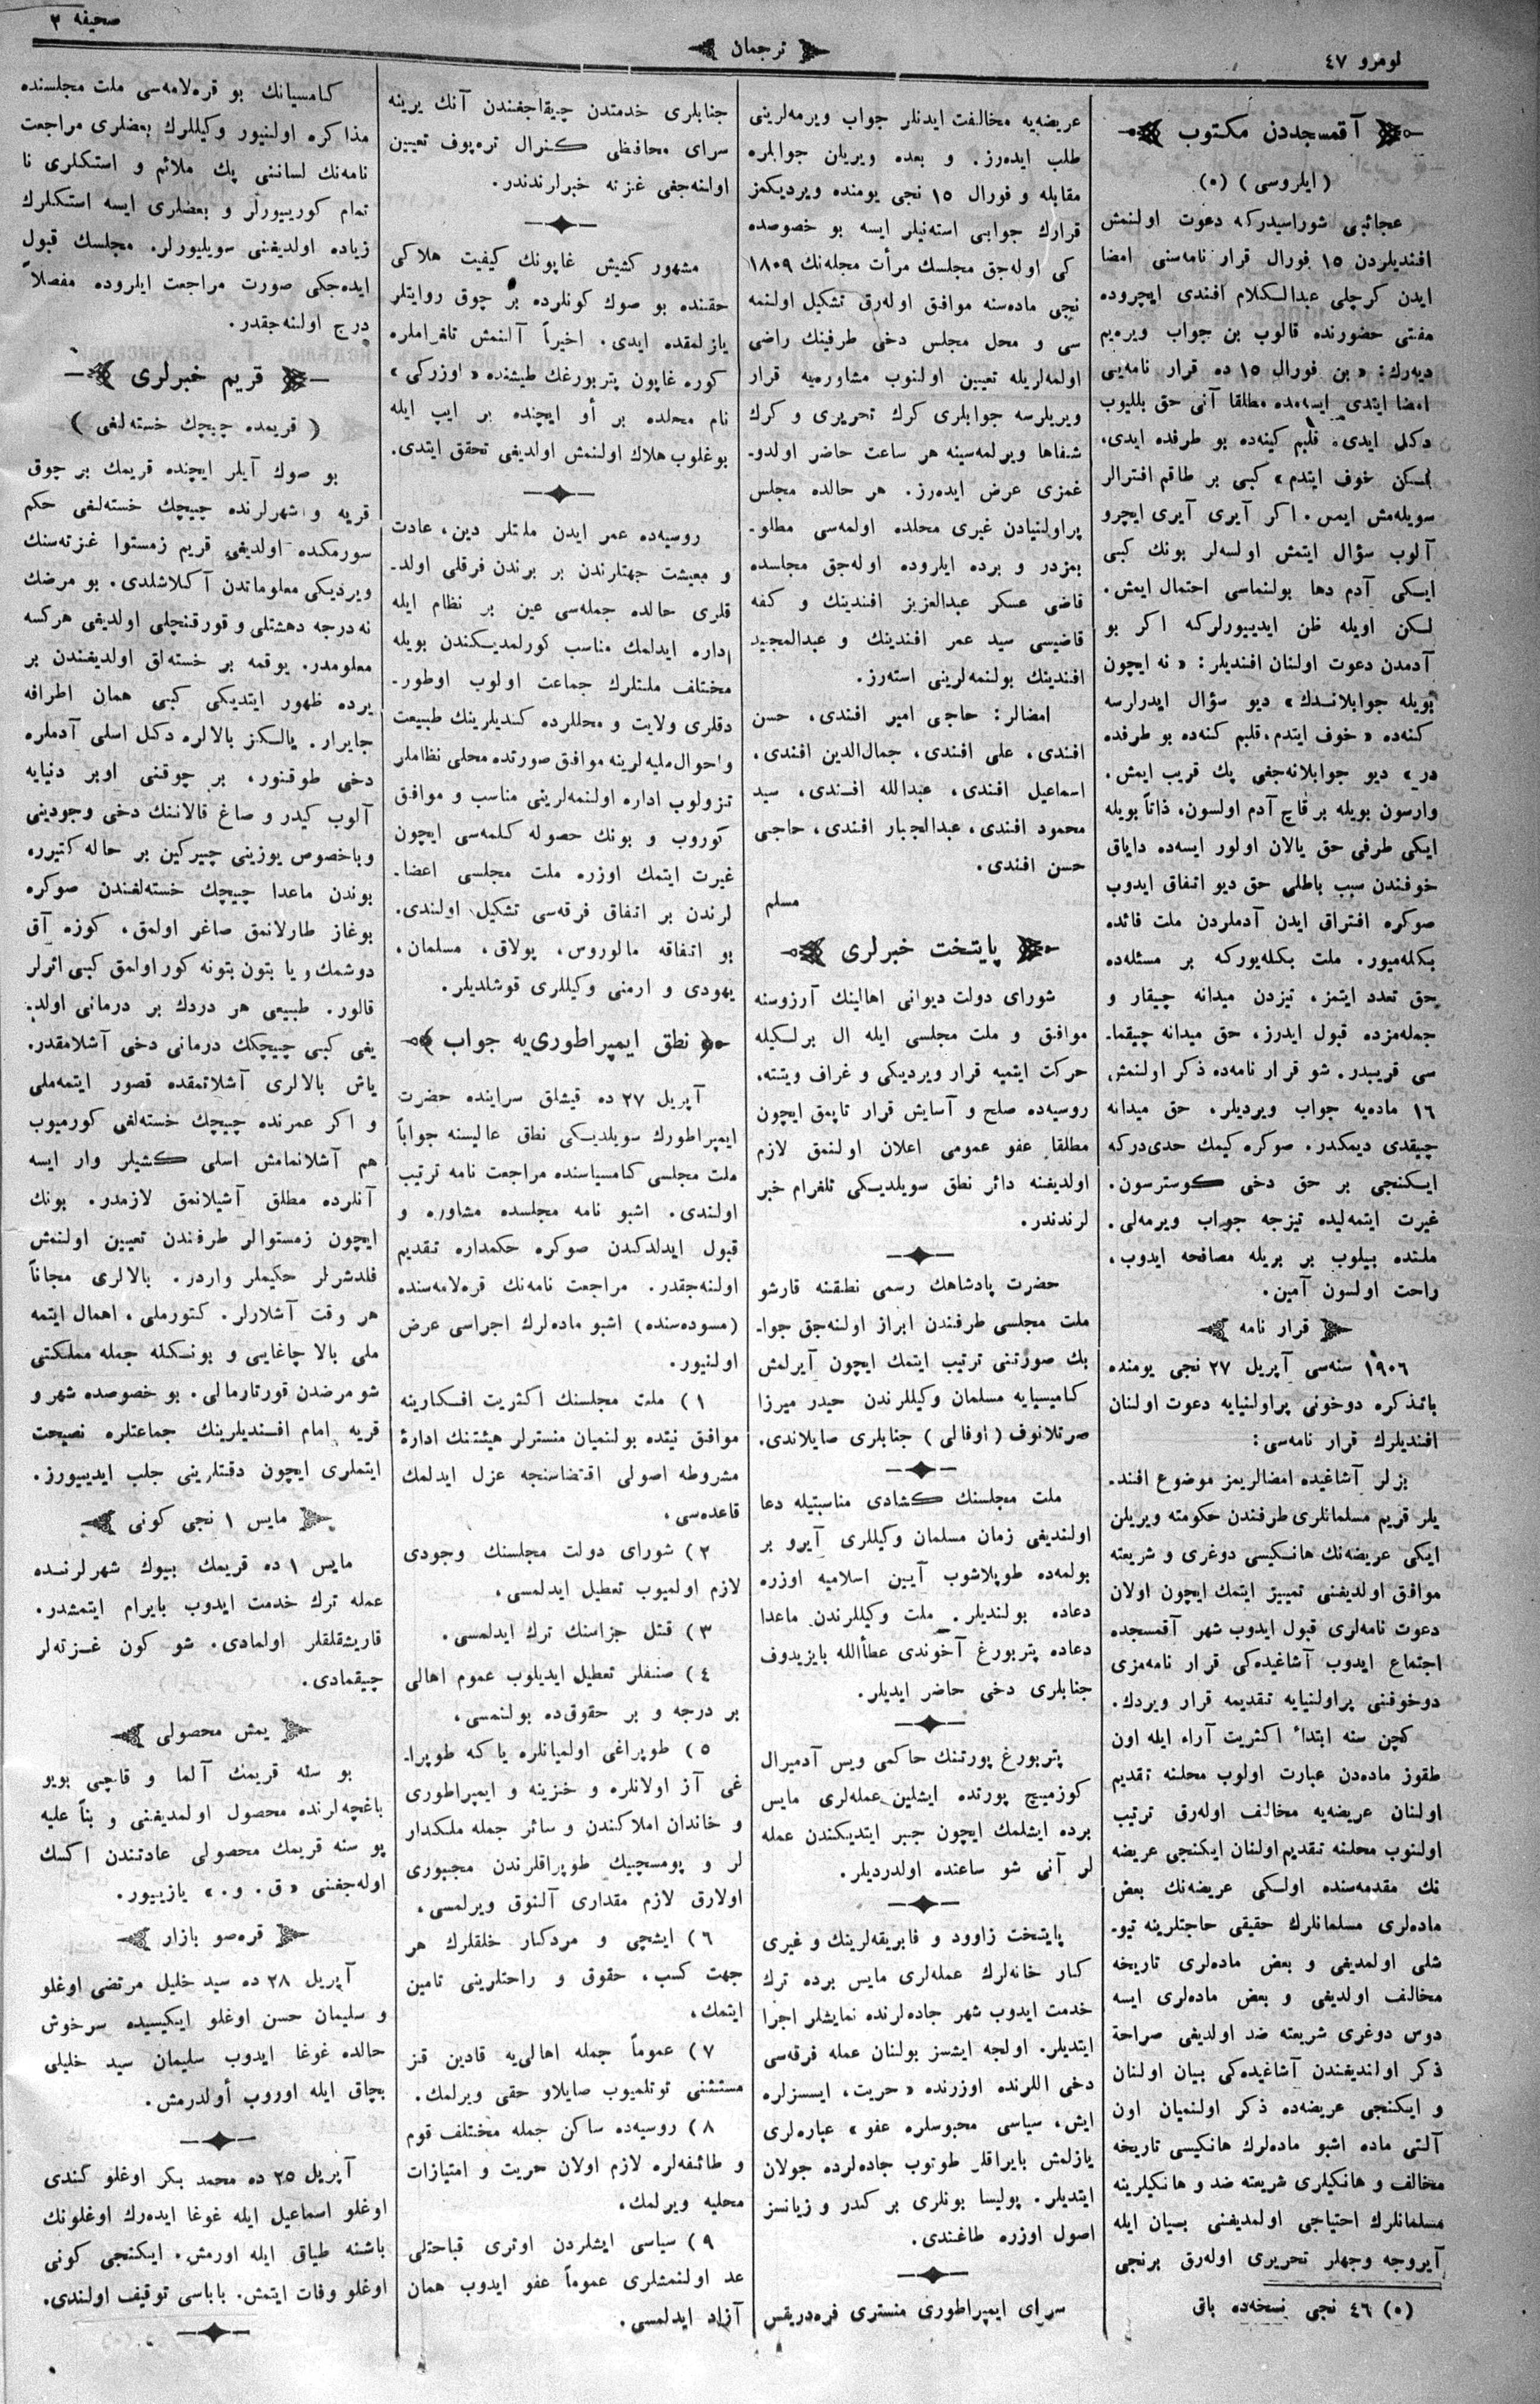 نومرو ٤٧
ترجمان
صحیفه ٢
آقمسجددن مكتوب
(ایلروسی) (٥)
عجائبی شوراسیدركه دعوت اولنمش
افندیلردن ١٥ فورال قرار نامه‌سنی امضا
ایدن كرچلی عبدالسلام افندی ایچروده
مفتی حضورنده قالوب بن جواب ویره‌یم
دیه‌رك: «بن فورال ١٥ ده قرار نامه‌یی
امضا ایتدی ایسه‌مده مطلقا آنی حق بللیوب
دكل ایدی، قلبم كینه‌ده بو طرفده ایدی،
لسكن خوف ایتدم» كبی بر طاقم افترالر
سویله‌مش ایمس. اكر آیری آیری ایچرو
آلوب سؤال ایتمش اولسه‌لر بونك كبی
ایسكی آدم دها بولنماسی احتمال ایمش.
لسكن اویله ظن ایدییورلركه اكر بو
آدمدن دعوت اولنان افندیلر: «نه ایچون
بویله جوابلاندك» دیو سؤال ایدرلرسه
كنه‌ده «خوف ایتدم، قلبم كنه‌ده بو طرفده
در» دیو جوابلانه‌جغی پك قریب ایمش.
وارسون بویله بر قاچ آدم اولسون، ذاتاً بویله
ایكی طرفی حق یالان اولور ایسه‌ده دایاق
خوفندن سبب باطلی حق دیو اتفاق ایدوب
صوكره افتراق ایدن آدملردن ملت فائده
بكله‌میور. ملت بكله‌یوركه بر مسئله‌ده
حق تعدد ایتمز، تیزدن میدانه چیقار و
جمله‌مزده قبول ایدرز، حق میدانه چیقما-
سی قریبدر. شو قرار نامه‌ده ذكر اولنمش
١٦ ماده‌یه جواب ویردیلر، حق میدانه
چیقدی دیمكدر. صوكره كیمك حدی‌دركه
ایسكنجی بر حق دخی كوسترسون.
غیرت ایتمه‌لیده تیزجه جواب ویرمه‌لی.
ملتده بیلوب بر بریله مصافحه ایدوب،
راحت اولسون آمین.
قرار نامه
١٩٠٦ سنه‌سی آپریل ٢٧ نجی یومنده
باتذكره دوخونی پراولنیایه دعوت اولنان
افندیلرك قرار نامه‌سی:
بزلر آشاغیده امضالریمز موضوع افند-
یلر قریم مسلمانلری طرفندن حكومته ویریلن
ایكی عریضه‌نك هانكیسی دوغری و شریعته
موافق اولدیغنی تمییز ایتمك ایچون اولان
دعوت نامه‌لری قبول ایدوب شهر آقمسجده
اجتماع ایدوب آشاغیده‌كی قرار نامه‌مزی
دوخوفنی پراولنیایه تقدیمه قرار ویردك.
كچن سنه ابتدا اكثریت آراء ایله اون
طقوز ماده‌دن عبارت اولوب محلنه تقدیم
اولنان عریضه‌یه مخالف اوله‌رق ترتیب
اولنوب محلنه تقدیم اولنان ایكنجی عریضه
نك مقدمه‌سنده اولكی عریضه‌نك بعض
ماده‌لری مسلمانلرك حقیقی حاجتلرینه تیو-
شلی اولمدیغی و بعض ماده‌لری تاریخه
مخالف اولدیغی و بعض ماده‌لری ایسه
دوس دوغری شریعته ضد اولدیغی صراحة
ذكر اولندیغندن آشاغیده‌كی بیان اولنان
و ایكنجی عریضه‌ده ذكر اولنمیان اون
آلتی ماده اشبو ماده‌لرك هانكیسی تاریخه
مخالف و هانكیلری شریعته ضد و هانكیلرینه
مسلمانلرك احتیاجی اولمدیغنی بسیان ایله
آیروجه وجهلر تحریری اوله‌رق برنجی
(٥) ٤٦ نجی نسخه‌ده باق
عریضه‌یه مخالفت ایدنلر جواب ویرمه‌لرینی
طلب ایده‌رز. و بعده ویریلان جوابلره
مقابله و فورال ١٥ نجی یومنده ویردیكمز
قرارك جوابی استه‌نیلر ایسه بو خصوصده
كی اوله‌جق مجلسك مرأت مجله‌نك ١٨٠٩
نجی ماده‌سنه موافق اوله‌رق تشكیل اولنمه
سی و محل مجلس دخی طرفینك راضی
اولمه‌لریله تعیین اولنوب مشاوره‌یه قرار
ویریلرسه جوابلری كرك تحریری و كرك
شفاها ویرلمه‌سینه هر ساعت حاضر اولدو-
غمزی عرض ایده‌رز. هر حالده مجلس
پراولنیادن غیری محلده اولمه‌سی مطلو-
بمزدر و برده ایلروده اوله‌جق مجلسده
قاضی عسكر عبدالعزیز افندینك و كفه
قاضیسی سید عمر افندینك و عبدالمجید
افندینك بولنمه‌لرینی استه‌رز.
امضالر: حاجی امیر افندی، حسن
افندی، علی افندی، جمال‌الدین افندی،
اسماعیل افندی، عبدالله افندی، سید
محمود افندی، عبدالجبار افندی، حاجی
حسن افندی.
مسلم
پایتخت خبرلری
شورای دولت دیوانی اهالینك آرزوسنه
موافق و ملت مجلسی ایله ال برلسكیله
حركت ایتمیه قرار ویردیكی و غراف ویتته،
روسیه‌ده صلح و آسایش قرار تاپمق ایچون
مطلقا عفو عمومی اعلان اولنمق لازم
اولدیغنه دائر نطق سویلدیكی تلغرام خبر
لرندندر.
حضرت پادشاهك رسمی نطقنه قارشو
ملت مجلسی طرفندن ابراز اولنه‌جق جوا-
بك صورتنی ترتیب ایتمك ایچون آیرلمش
كامیسیایه مسلمان وكیللرندن حیدر میرزا
صرتلانوف (اوفالی) جنابلری صایلاندی.
ملت مجلسنك كشادی مناسبتیله دعا
اولندیغی زمان مسلمان وكیللری آیرو بر
بولمه‌ده طوپلاشوب آیین اسلامیه اوزره
دعاده بولندیلر. ملت وكیللرندن ماعدا
دعاده پتربورغ آخوندی عطأالله بایزیدوف
جنابلری دخی حاضر ایدیلر.
پتربورغ پورتنك حاكمی ویس آدمیرال
كوزمیچ پورتده ایشلین عمله‌لری مایس
برده ایشلمك ایچون جبر ایتدیكندن عمله
لر آنی شو ساعنده اولدردیلر.
پایتخت زاوود و فابریقه‌لرینك و غیری
كار خانه‌لرك عمله‌لری مایس برده ترك
خدمت ایدوب شهر جاده‌لرنده نمایشلر اجرا
ایتدیلر. اولجه ایشسز بولنان عمله فرقه‌سی
دخی اللرنده اوزرنده «حریت، ایسسزلره
ایش، سیاسی محبوسلره عفو» عباره‌لری
یازلمش بایراقلر طوتوب جاده‌لرده جولان
ایتدیلر. پولیسا بونلری بر كدر و زیانسز
اصول اوزره طاغندی.
سرای ایمپراطوری منستری فره‌دریقس
جنابلری خدمتدن چیقاجغندن آنك یرینه
سرای محافظی كنرال تره‌پوف تعیین
اولنه‌جغی غزته خبرلرندندر.
مشهور كشیش غاپونك كیفیت هلاكی
حقنده بو صوك كونلرده بر چوق روایتلر
یازلمقده ایدی. اخیراً آلنمش تلغراملره
كوره غاپون پتربورغك طیشنده «اوزركی»
نام محلده بر أو ایچنده بر ایپ ایله
بوغلوب هلاك اولنمش اولدیغی تحقق ایتدی.
روسیه‌ده عمر ایدن ملتلر دین، عادت
و معیشت جهتلرندن بر برندن فرقلی اولد-
قلری حالده جمله‌سی عین بر نظام ایله
اداره ایدلمك مناسب كورلمدیكندن بویله
مختلف ملتلرك جماعت اولوب اوطور-
دقلری ولایت و محللرده كندیلرینك طبیعت
و احوال ملیه‌لرینه موافق صورتده محلی نظاملر
تزولوب اداره اولنمه‌لرینی مناسب و موافق
كوروب و بونك حصوله كلمه‌سی ایچون
غیرت ایتمك اوزره ملت مجلسی اعضا-
لرندن بر اتفاق فرقه‌سی تشكیل اولندی.
بو اتفاقه مالوروس، پولاق، مسلمان،
یهودی و ارمنی وكیللری قوشلدیلر.
نطق ایمپراطوری‌یه جواب
آپریل ٢٧ ده قیشلق سراینده حضرت
ایمپراطورك سویلدیكی نطق عالیسنه جواباً
ملت مجلسی كامسیاسنده مراجعت نامه ترتیب
اولندی. اشبو نامه مجلسده مشاوره و
قبول ایدلدكدن صوكره حكمداره تقدیم
اولنه‌جقدر. مراجعت نامه‌نك قره‌لامه‌سنده
(مسوده‌سنده) اشبو ماده‌لرك اجراسی عرض
اولنیور.
١) ملت مجلسنك اكثریت افكارینه
موافق نیتده بولنمیان منسترلر هیئتنك ادارهٔ
مشروطه اصولی اقتضاسنجه عزل ایدلمك
قاعده‌سی،
٢) شورای دولت مجلسنك وجودی
لازم اولمیوب تعطیل ایدلمسی،
٣) قتل جزاسنك ترك ایدلمسی.
٤) صنفلر تعطیل ایدیلوب عموم اهالی
بر درجه و بر حقوق‌ده بولنمسی،
٥) طوپراغی اولمیانلره یاكه طوپرا-
غی آز اولانلره و خزینه و ایمپراطوری
و خاندان املاكندن و سائر جمله ملكدار
لر و پومسچیك طوپراقلرندن مجبوری
اولارق لازم مقداری آلنوق ویرلمسی،
٦) ایشچی و مردكار خلقلرك هر
جهت كسب، حقوق و راحتلرینی تامین
ایتمك،
٧) عموماً جمله اهالی‌یه قادین قز
مستثنی توتلمیوب صایلاو حقی ویرلمك.
٨) روسیه‌ده ساكن جمله مختلف قوم
و طائفه‌لره لازم اولان حریت و امتیازات
محلیه ویرلمك،
٩) سیاسی ایشلردن اوتری قباحتلی
عد اولنمشلری عموماً عفو ایدوب همان
آزاد ایدلمسی.
كامسیانك بو قره‌لامه‌سی ملت مجلسنده
مذاكره اولنیور وكیللرك بعضلری مراجعت
نامه‌نك لساننی پك ملائم و استكلری نا
تمام كورییورلر و بعضلری ایسه استكلرك
زیاده اولدیغنی سویلیورلر. مجلسك قبول
ایده‌جكی صورت مراجعت ایلروده مفصلاً
درج اولنه‌جقدر.
قریم خبرلری
(قریمده چیچك خسته‌لغی)
بو صوك آیلر ایچنده قریمك بر چوق
قریه و شهرلرنده چیچك خسته‌لغی حكم
سورمكده اولدیغی قریم زمستوا غزته‌سنك
ویردیكی معلوماتدن آكلاشلدی. بو مرضك
نه درجه دهشتلی و قورقنچلی اولدیغی هركسه
معلومدر. یوقمه بر خسته‌لق اولدیغندن بر
یرده ظهور ایتدیكی كبی همان اطرافه
جایرار. یالكز بالالره دكل اسلی آدملره
دخی طوقنور، بر چوقنی اوبر دنیایه
آلوب كیدر و صاغ قالاننك دخی وجودینی
وباخصوص یوزینی چیركین بر حاله كتیرر.
بوندن ماعدا چیچك خسته‌لغندن صوكره
بوغاز طارلانمق صاغر اولمق، كوزه آق
دوشمك و یا بتون بتونه كور اولمق كبی اثرلر
قالور. طبیعی هر دردك بر درمانی اولد-
یغی كبی چیچكك درمانی دخی آشلامقدر.
یاش بالالری آشلاتمقده قصور ایتمه‌ملی
و اكر عمرنده چیچك خسته‌لغی كورمیوب
هم آشلانمامش اسلی كشیلر وار ایسه
آنلرده مطلق آشیلانمق لازمدر. بونك
ایچون زمستوالر طرفندن تعیین اولنمش
فلدشرلر حكیملر واردر. بالالری مجاناً
هر وقت آشلارلر. كتورملی، اهمال ایتمه
ملی بالا چاغایی و بونكله جمله مملكتی
شو مرضدن قورتارمالی. بو خصوصده شهر و
قریه امام افندیلرینك جماعتلره نصیحت
ایتملری ایچون دقتلرینی جلب ایدییورز.
مایس ١ نجی كونی
مایس ١ ده قریمك بیوك شهرلرنده
عمله ترك خدمت ایدوب بایرام ایتمشدر.
قاریشقلقلر اولمادی. شو كون غزته‌لر
چیقمادی.
یمش محصولی
بو سنه قریمك آلما و قاچی بویو
باغچه‌لرنده محصول اولمدیغنی و بناً علیه
بو سنه قریمك محصولی عادتندن اكسك
اوله‌جغنی «ق. و.» یازییور.
قره‌صو بازار
آپریل ٢٨ ده سید خلیل مرتضی اوغلو
و سلیمان حسن اوغلو ایكیسیده سرخوش
حالده غوغا ایدوب سلیمان سید خلیلی
بچاق ایله اوروب أولدرمش.
آپریل ٢٥ ده محمد بكر اوغلو كندی
اوغلو اسماعیل ایله غوغا ایده‌رك اوغلونك
باشنه طیاق ایله اورمش. ایكنجی كونی
اوغلو وفات ایتمش. باباسی توقیف اولندی.